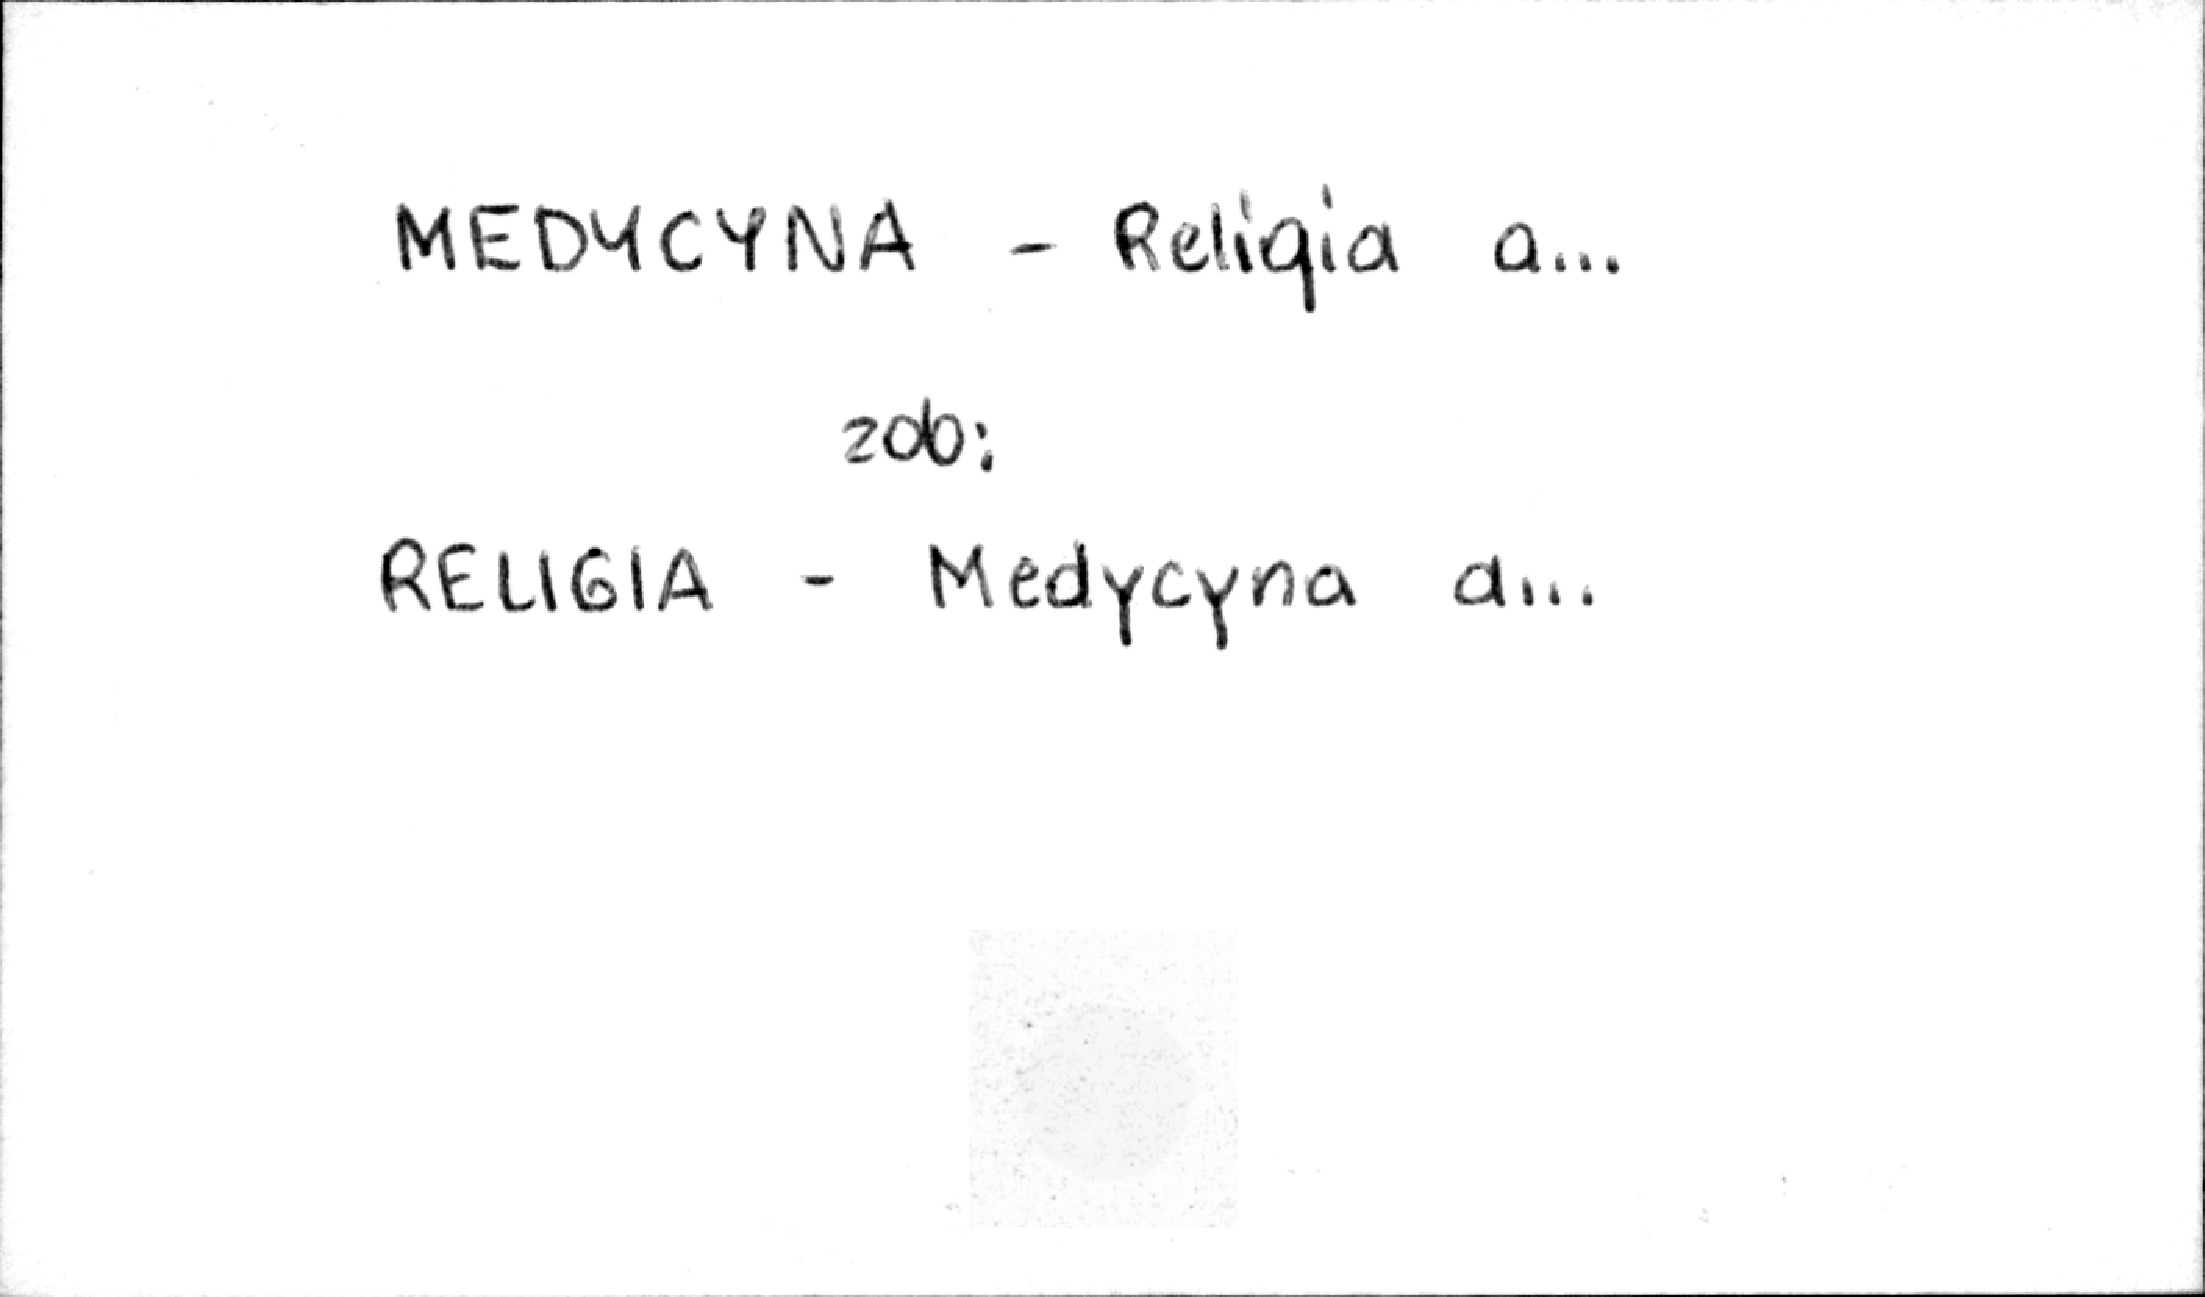 MEDYCYNA - Religia a...
zob:
RELIGIA - Medycyna a...